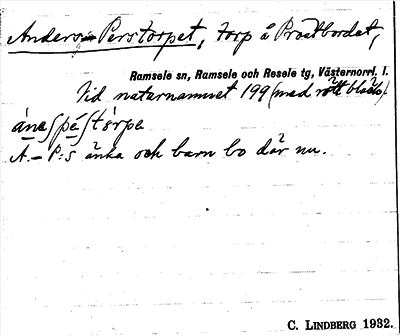 Anders-Perstorpet, torp å Prostbordet,
Ramsele sn, Ramsele och Resele tg, Västernorrl. l.
Vid naturnamnet 199 (med rött bläck).
A.-P:s änka och barn bo där nu.
C. LINDBERG 1932.